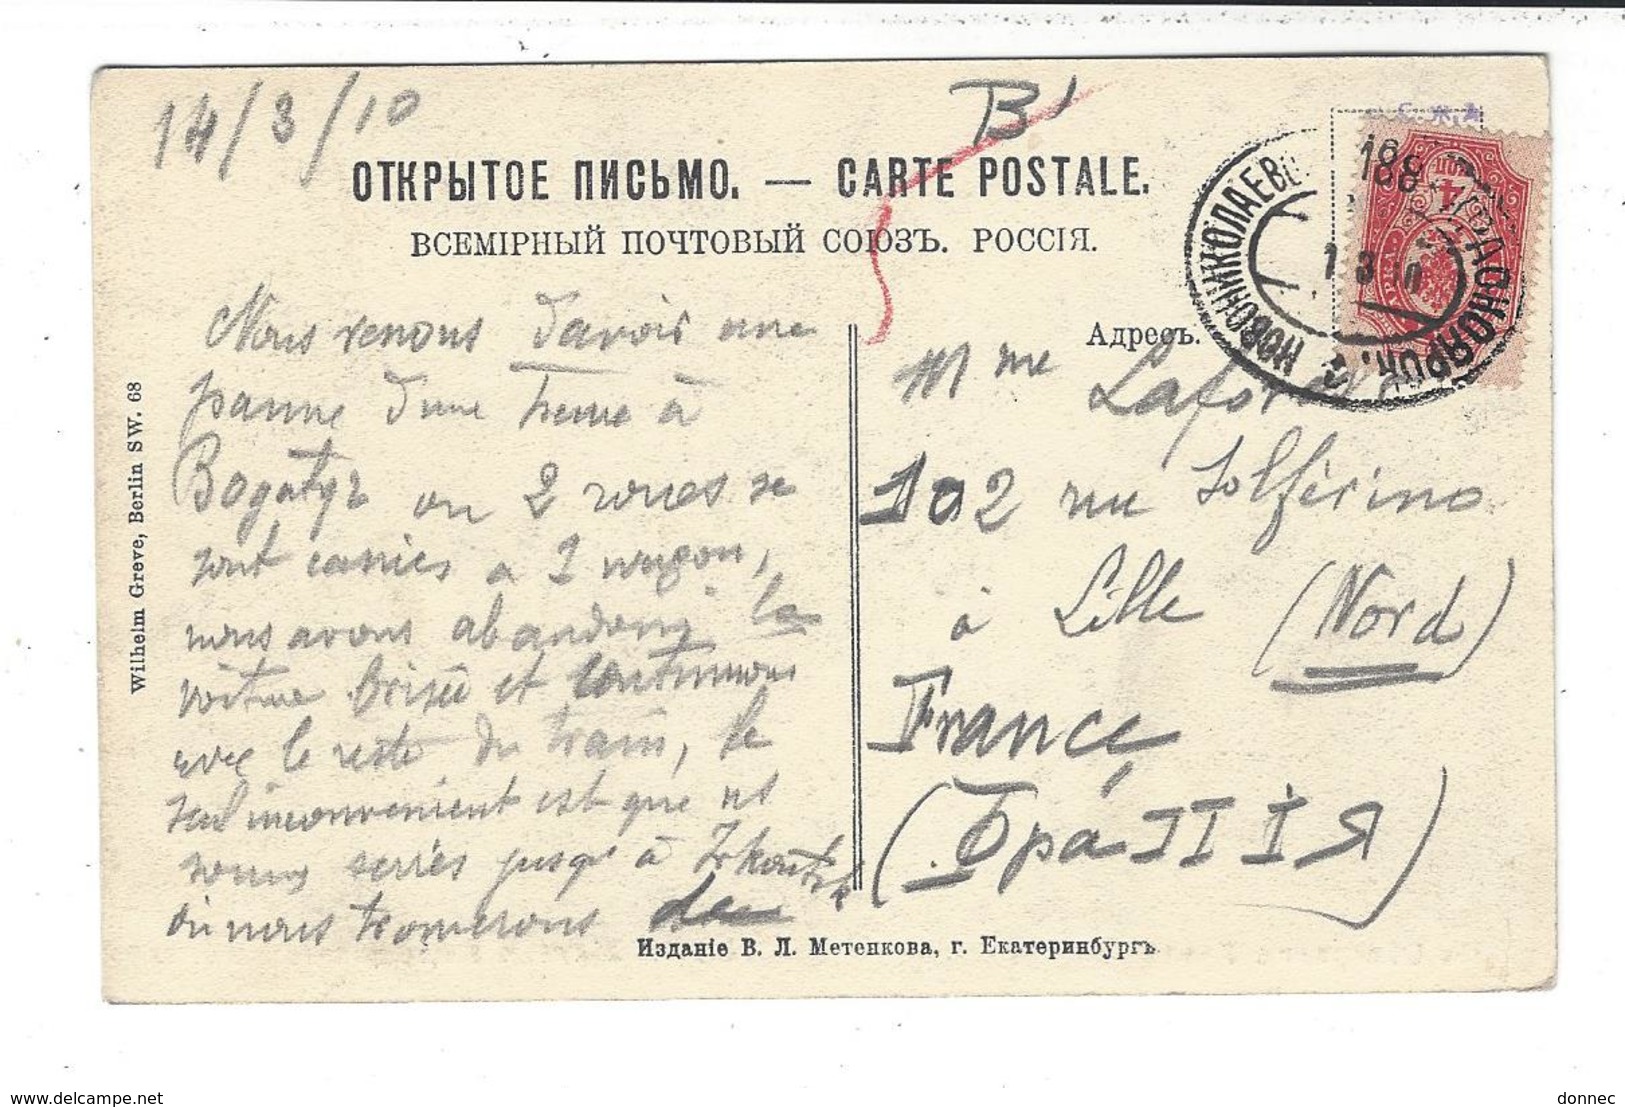 14/3/10
B'
ОТКРЫТОЕ ПИСЬМО. — CARTE POSTALE.
ВСЕМІРНЫЙ ПОЧТОВЫЙ СОЮЗЪ. РОССІЯ.
Nous venons d'avoir une
panne d'une heure à
Bogatyr ou 2 roues se
sont cassées a 1 wagon,
nous avons abandonné la
voiture brisée et continuons
avec le reste du train, le
seul inconvenient est que ns
sommes serrés jusqu'à Irkoutsk
où nous trouverons
Адресъ.
Mme Laforce
102 rue Solférino
à Lille (Nord)
France
НОВОНИКОЛАЕВ
КРАСНОЯРСК.
188
1 3 10
Wilhelm Greve, Berlin SW. 68
Изданіе В. Л. Метенкова, г. Екатеринбургъ
donnec
www.delcampe.net